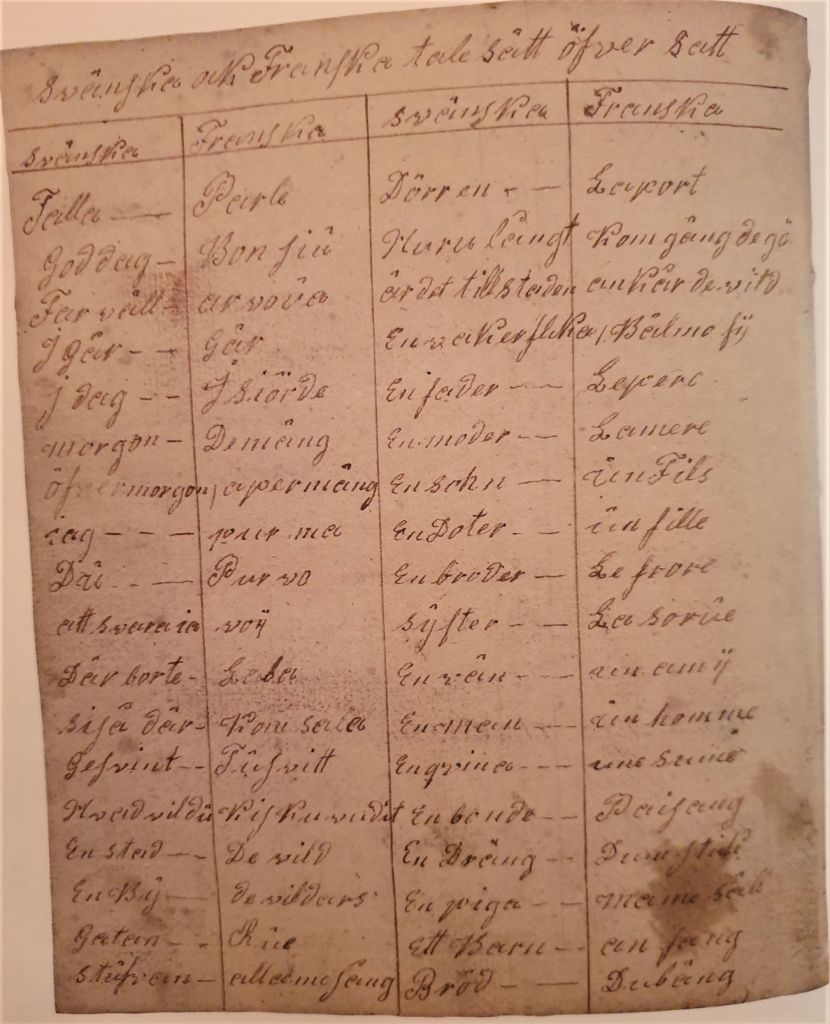 svänska ok Franska talesätt öfver satt
svänska Franska svänska Franska
Talla — Parle Dörren - — Laport
God dag — Bon siü Huru långt Kom gång de gö
Far väll — ar vova är det till staden ankår de vild
J går - - Går En vaker flika / Bälmo sij
J dag - - J siörde En fader - - Lepere
morgon — Demäng En moder - - Lamere
öfvermorgon / apermäng En sohn — ün Fils
iag - - - pur ma En Doter - - ün fille
Däi - — Pur vo En broder - — Le frore
att svara ia voij syster - — La sorüe
Där borte - Leba En vän - — ün amij
siså där - Kom sala En man - - - ün homme
Gesvint - - Tüsvitt En qvina - - -
Hvad vil dü Kis ku vudit En bonde - - Paisang
En stad - - De vild En Dräng - -
En By — de vildars En piga - -
Gatan - - Rüe Ett Barn - - an fang
stüfvan — allamosång Bröd - — Dübäng